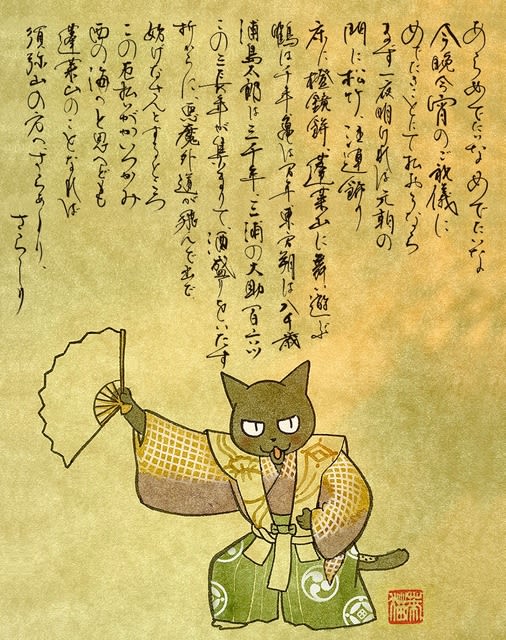 あらめでたいな めでたいな
今晩今宵のご祝儀に
めでたいことにて払おうなら
まず一夜明ければ元朝の
門に松竹、注連飾り
床に橙鏡餅、蓬莱山に舞い遊ぶ
鶴は千年、亀は万年、東方朔は八千歳
浦島太郎は三千年、三浦の大助百六ツ
この三長年が集まりて、酒盛りをいたす
折からに、悪魔外道が飛んで出で
妨げなさんとするところ
この厄払いがかいつかみ
西の海へと思へども
蓬莱山のことなれば
須弥山の方へ、さらありり、
さらーり